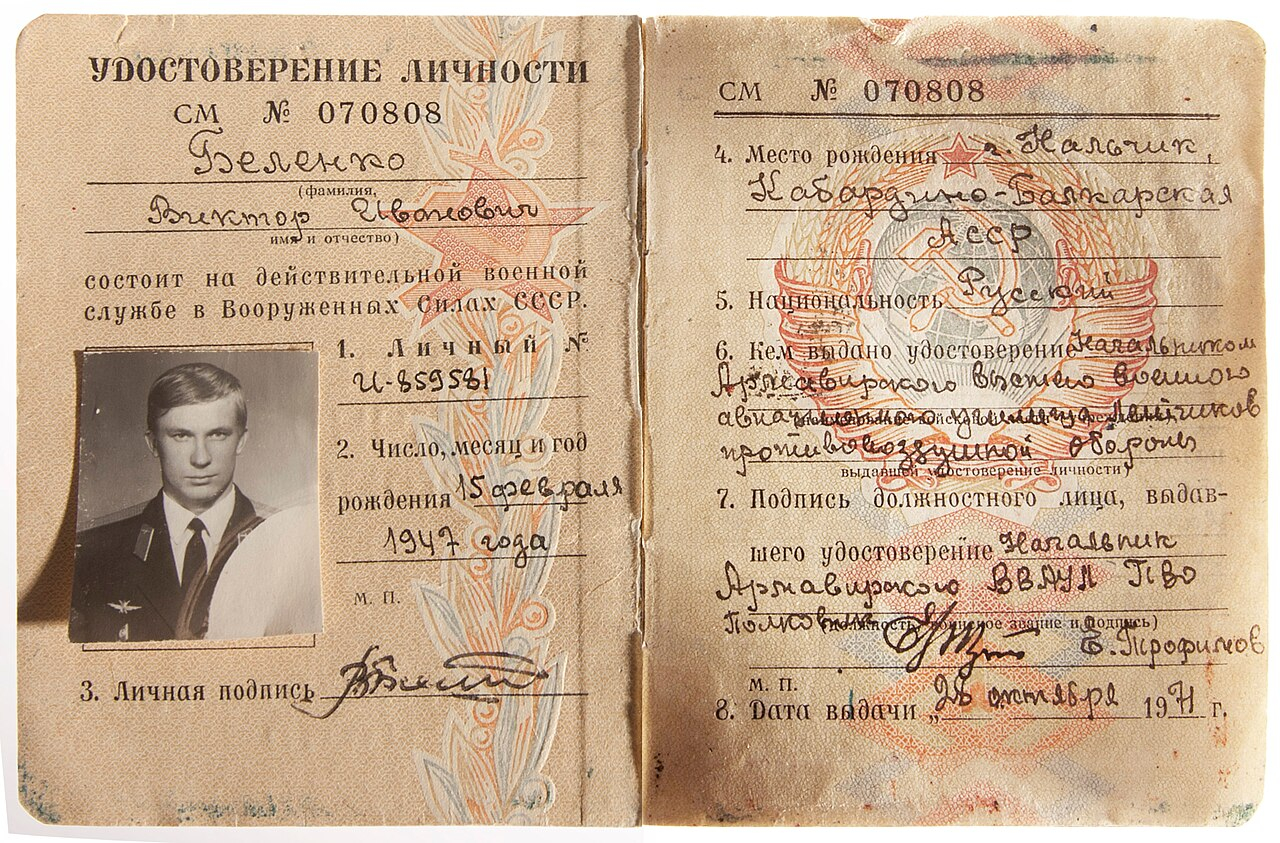 УДОСТОВЕРЕНИЕ ЛИЧНОСТИ
СМ № 070808
Беленко
(фамилия,
Виктор Иванович
имя и отчество)
состоит на действительной военной
службе в Вооруженных Силах СССР.
1. Личный №
И-859581
2. Число, месяц и год
рождения 15 февраля
1947 года
М. П.
3. Личная подпись
СМ № 070808
4. Место рождения г. Нальчик,
Кабардино-Балкарская
АССР
5. Национальность Русский
6. Кем выдано удостоверение Начальником
Армавирского высшего военного
авиационного училища летчиков
противовоздушной обороны
выдавшей удостоверение личности)
7. Подпись должностного лица, выдав-
шего удостоверение Начальник
Армавирского ВВАУЛ ПВО
Полковник Е. Трофимов
(должность, воинское звание и подпись)
М. П.
8. Дата выдачи „26 октября 1971 г.